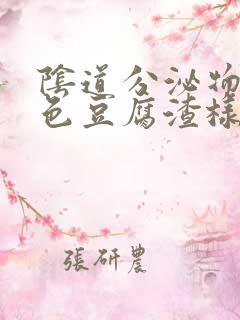 陰道分泌物
色豆腐渣樣
張研農